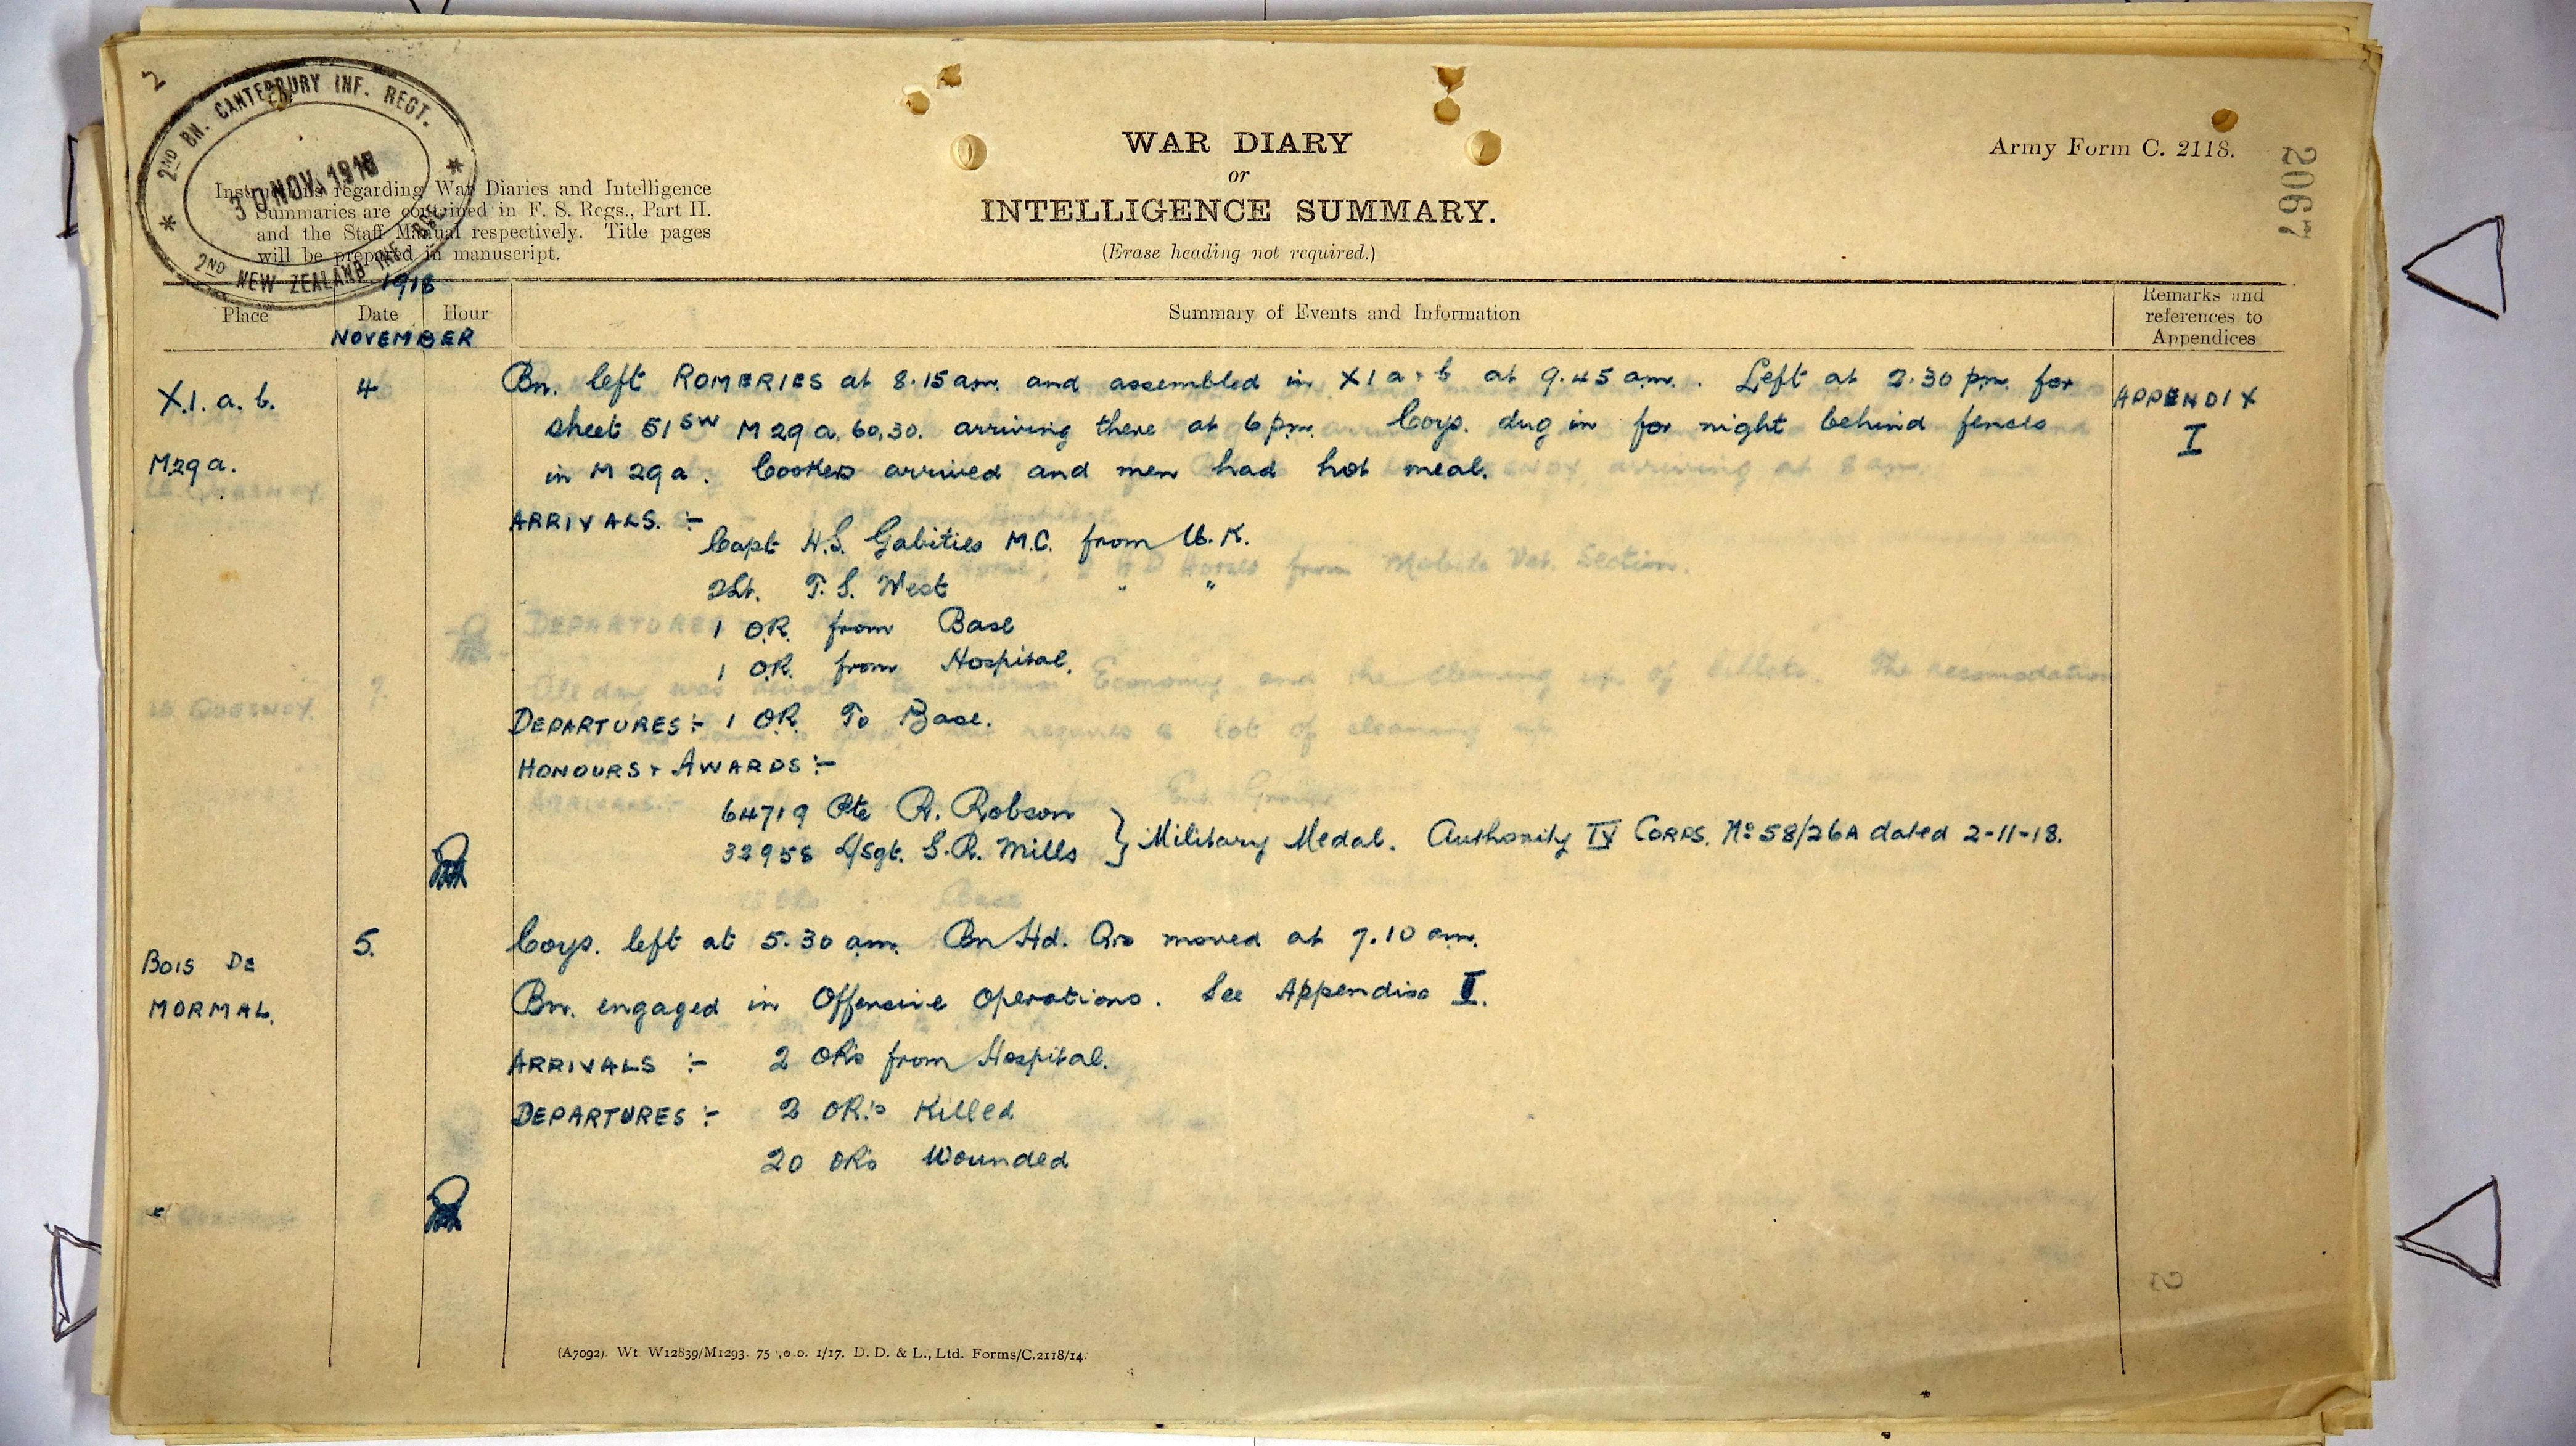 2
2ND BN. CANTERBURY INF. REGT.
30 NOV. 1918
2ND NEW ZEALAND INF. BDE
Instructions regarding War Diaries and Intelligence
Summaries are contained in F. S. Regs., Part II.
and the Staff Manual respectively. Title pages
will be prepared in manuscript.
WAR DIARY
or
INTELLIGENCE SUMMARY.
(Erase heading not required.)
Army Form C. 2118.
2067
1918
Place Date Hour Summary of Events and Information
Remarks and
references to
Appendices
NOVEMBER
X.1. a. b. 4 Bn. left ROMERIES at 8.15 am. and assembled in X1 a + b at 9.45 am. . Left at 2.30 pm. for
APPENDIX
I
sheet 51 SW M 29 a. 60.30. arriving there at 6 pm. Coys. dug in for night behind fences
M29 a. in M 29 a. Cookers arrived and men had hot meal.
ARRIVALS. :-
Capt H.S. Gabities M.C. from U.K.
2Lt. T. S. West " "
1 O.R. from Base
1 O.R. from Hospital.
DEPARTURES :- 1 O.R. To Base.
HONOURS + AWARDS :-
64719 Pte R. Robson
32958 L/Sgt. S.R. Mills } Military Medal. Authority IV CORPS. No 58/26A dated 2-11-18.
5. Coys. left at 5.30 am. Bn Hd. Qrs moved at 7.10 am.
BOIS DE
MORMAL. Bn. engaged in Offensive Operations. See Appendix I.
ARRIVALS :- 2 ORs from Hospital.
DEPARTURES :- 2 OR's Killed
20 ORs Wounded
(A7092). Wt W12839/M1293. 75 ,o o. 1/17. D. D. & L., Ltd. Forms/C.2118/14.